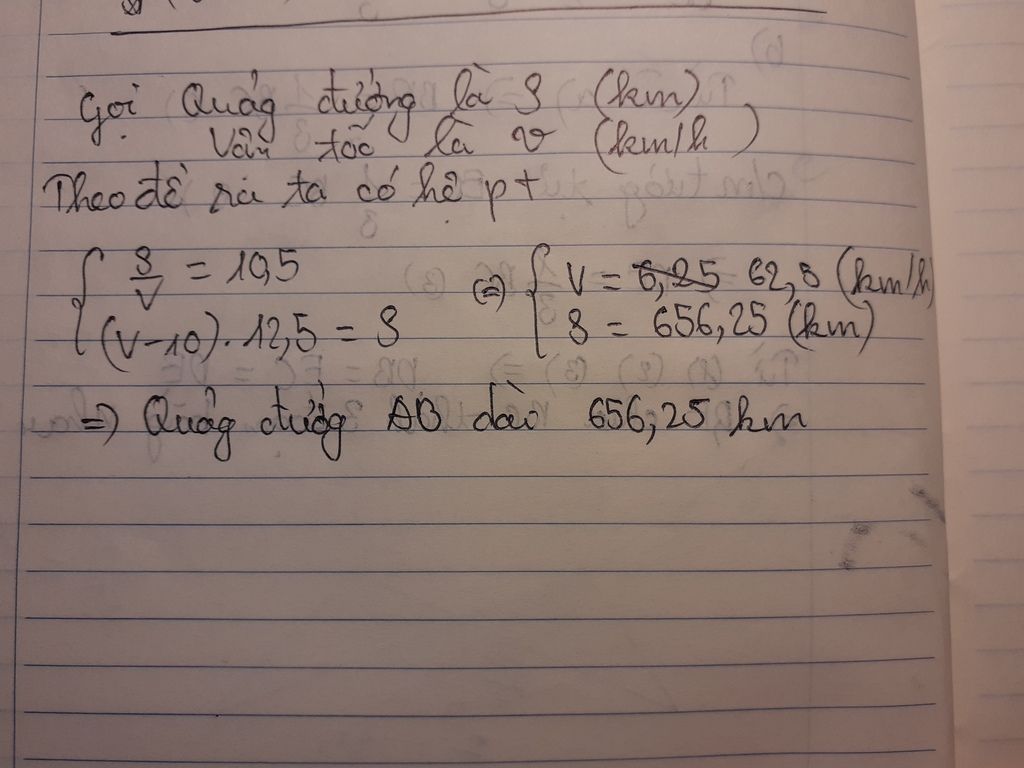 Gọi Quãng đường là S (km)
Vân tốc là v (km/h)
Theo đề ra ta có hệ pt
{ S/V = 10,5 <=> { V = 6,25 62,5 (km/h)
(V-10).12,5 = S S = 656,25 (km)
=> Quãng đường AB dài 656,25 km